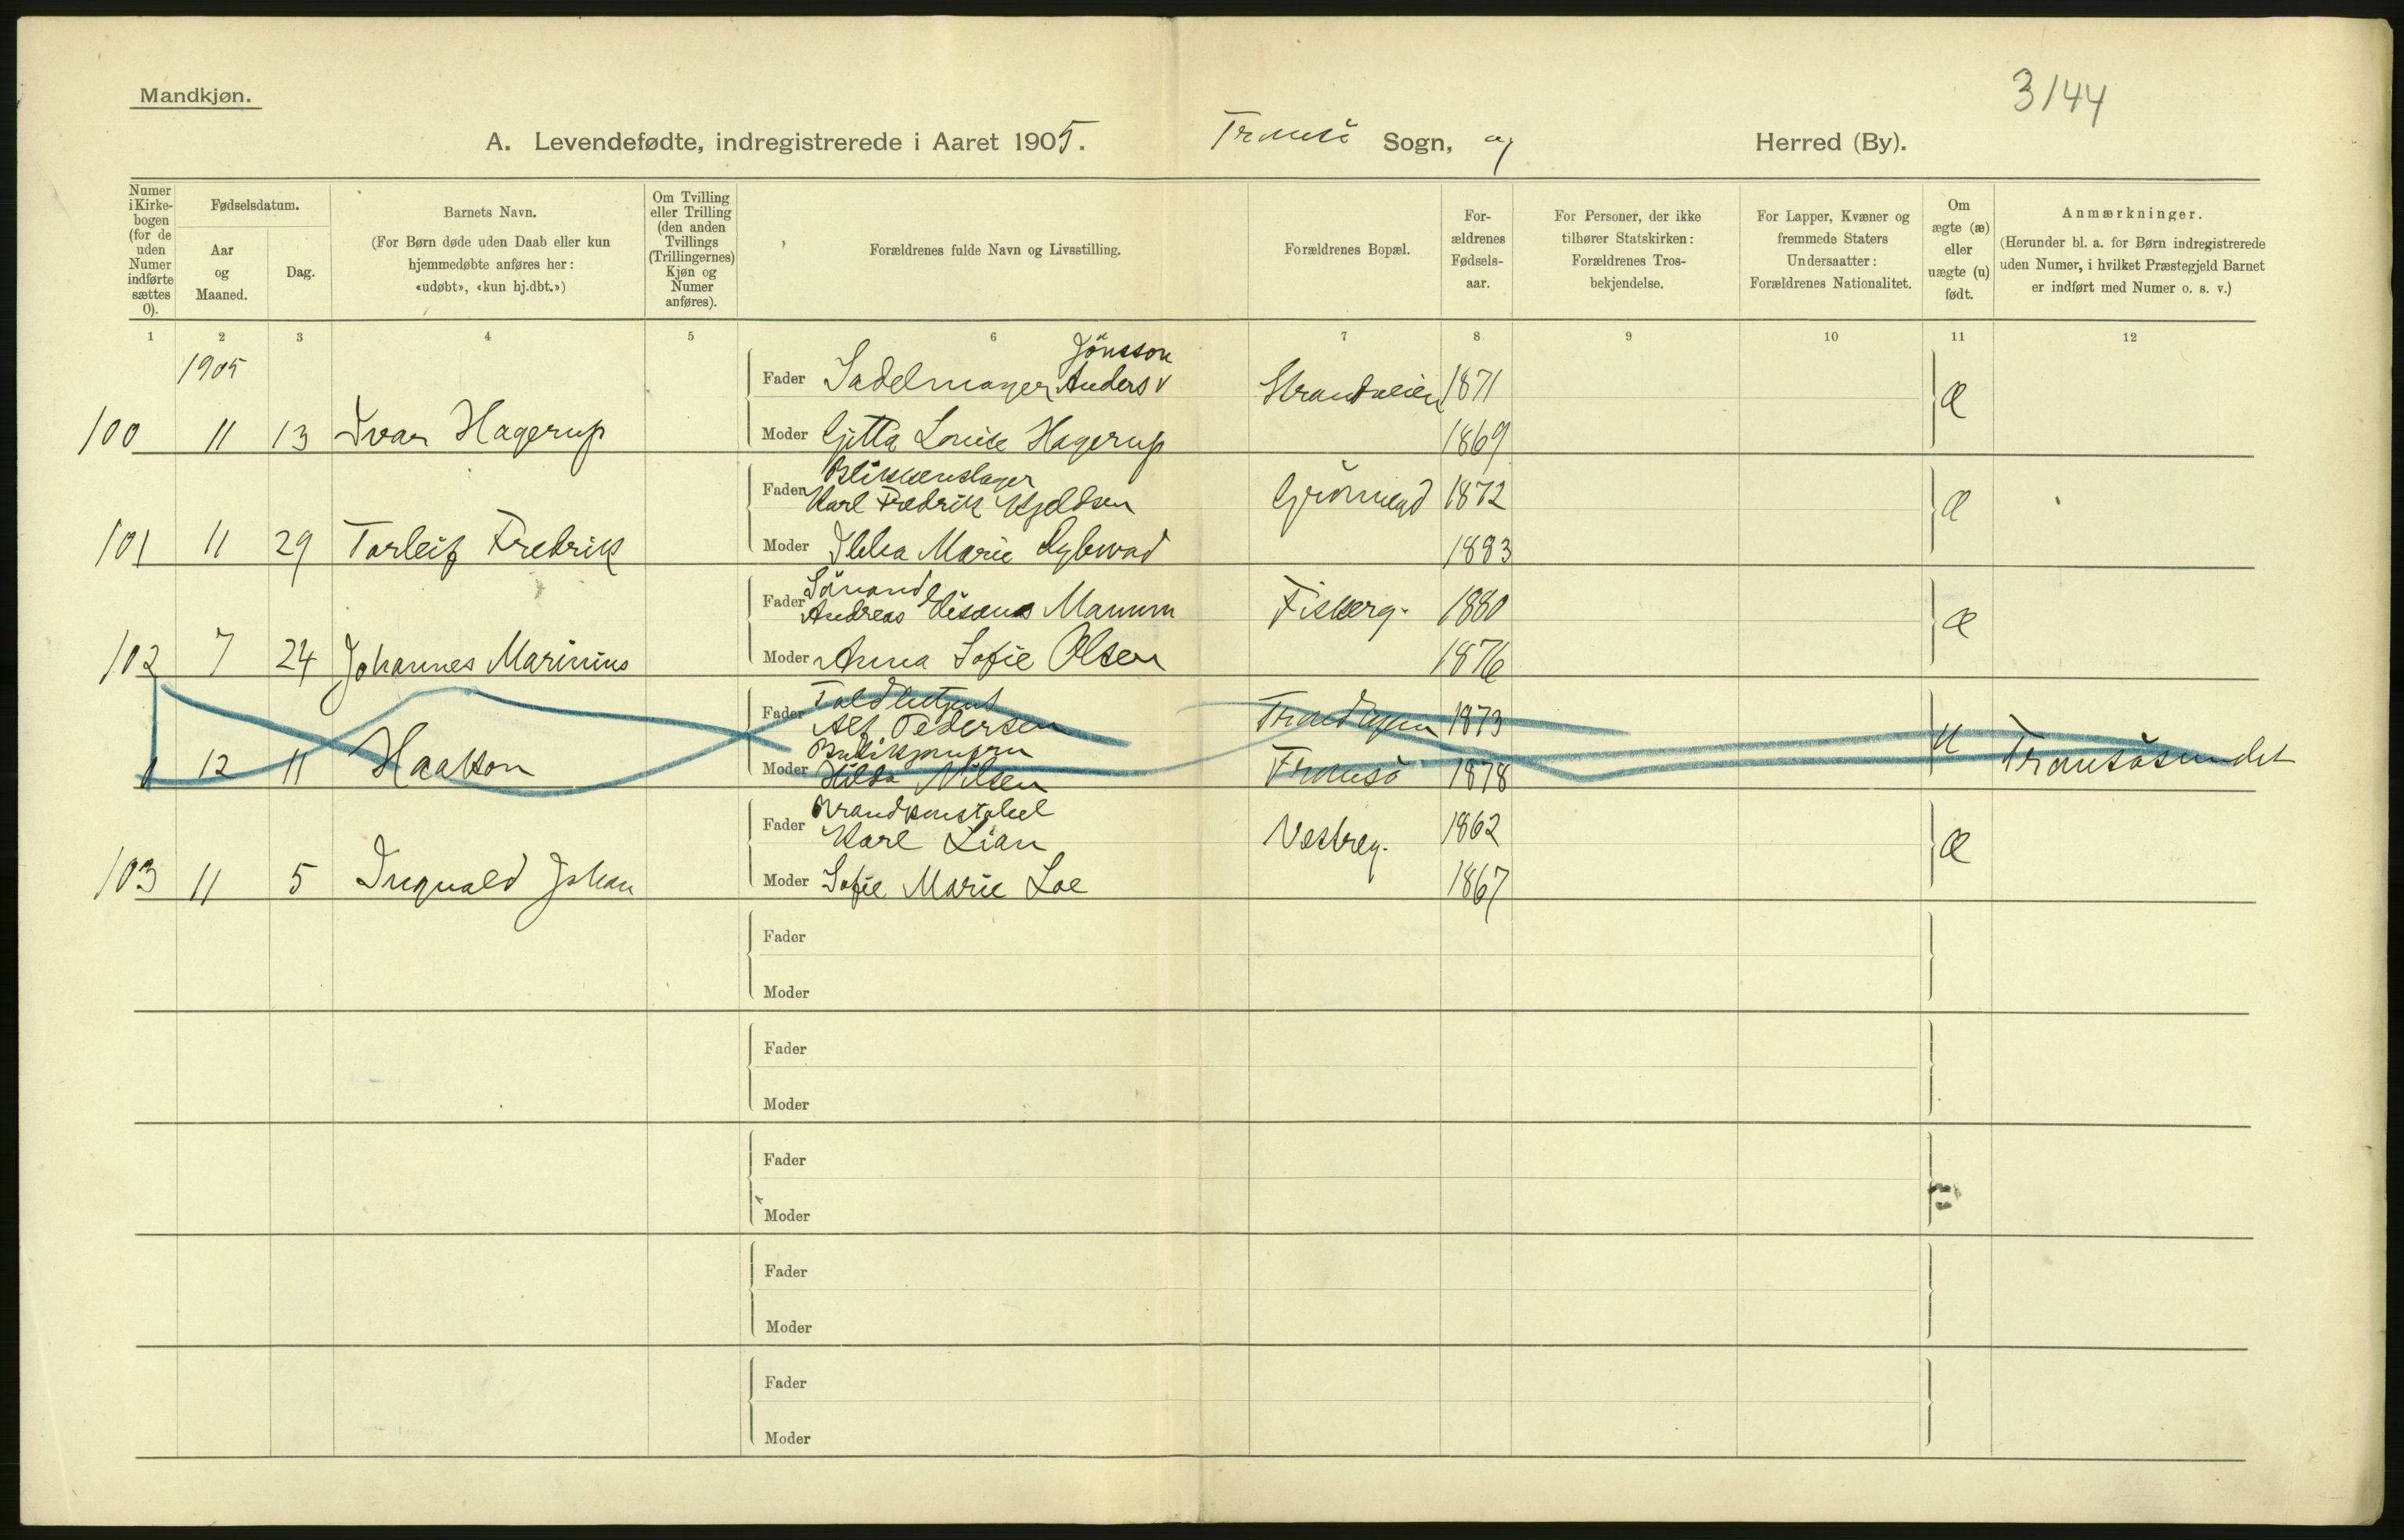 Mandkjøn.
3/44
A. Levendefødte, indregistrerede i Aaret 1905. Tromsö Sogn, og Herred (By).
Numer i Kirke-bogen (for de uden Numer indførte sættes 0).
Fødselsdatum.
Aar og Maaned.
Dag.
Barnets Navn.
(For Børn døde uden Daab eller kun hjemmedøbte anføres her: «udøbt», «kun hj.dbt.»)
Om Tvilling eller Trilling (den anden Tvillings (Trillingernes) Kjøn og Numer anføres).
Forældrenes fulde Navn og Livsstilling.
Forældrenes Bopæl.
For-ældrenes Fødsels-aar.
For Personer, der ikke tilhører Statskirken: Forældrenes Tros-bekjendelse.
For Lapper, Kvæner og fremmede Staters Undersaatter: Forældrenes Nationalitet.
Om ægte (æ) eller uægte (u) født.
Anmærkninger.
(Herunder bl. a. for Børn indregistrerede uden Numer, i hvilket Præstegjeld Barnet er indført med Numer o. s. v.)
1 2 3 4 5 6 7 8 9 10 11 12
1905
Jönsson
Fader Sadelmager Anders v Strandveien 1871
100 11 13 Ivar Hagerup Moder Gjitta Louise Hagerup 1869 Æ
Blikkenslager
Fader Karl Fredrik Kjeldsen Grönnegd 1872
101 11 29 Torleif Fredrik Moder Marie 1883 Æ
Sömand
Fader Andreas Manum Fiskerg. 1880
102 7 24 Johannes Marinius Moder Anna Sofie Olsen 1876 Æ
Toldbetjent
Fader Alf. Pedersen Trondhjem 1873
12 11 Haakon
Moder Hilda Nilsen Tromsö 1878 u Tromsösundet
Brandkonstabel
Fader Karl Lian Vestreg. 1862
103 11 5 Ingvald Johan Moder Sofie Marie Loe 1867 Æ
Fader
Moder
Fader
Moder
Fader
Moder
Fader
Moder
Fader
Moder